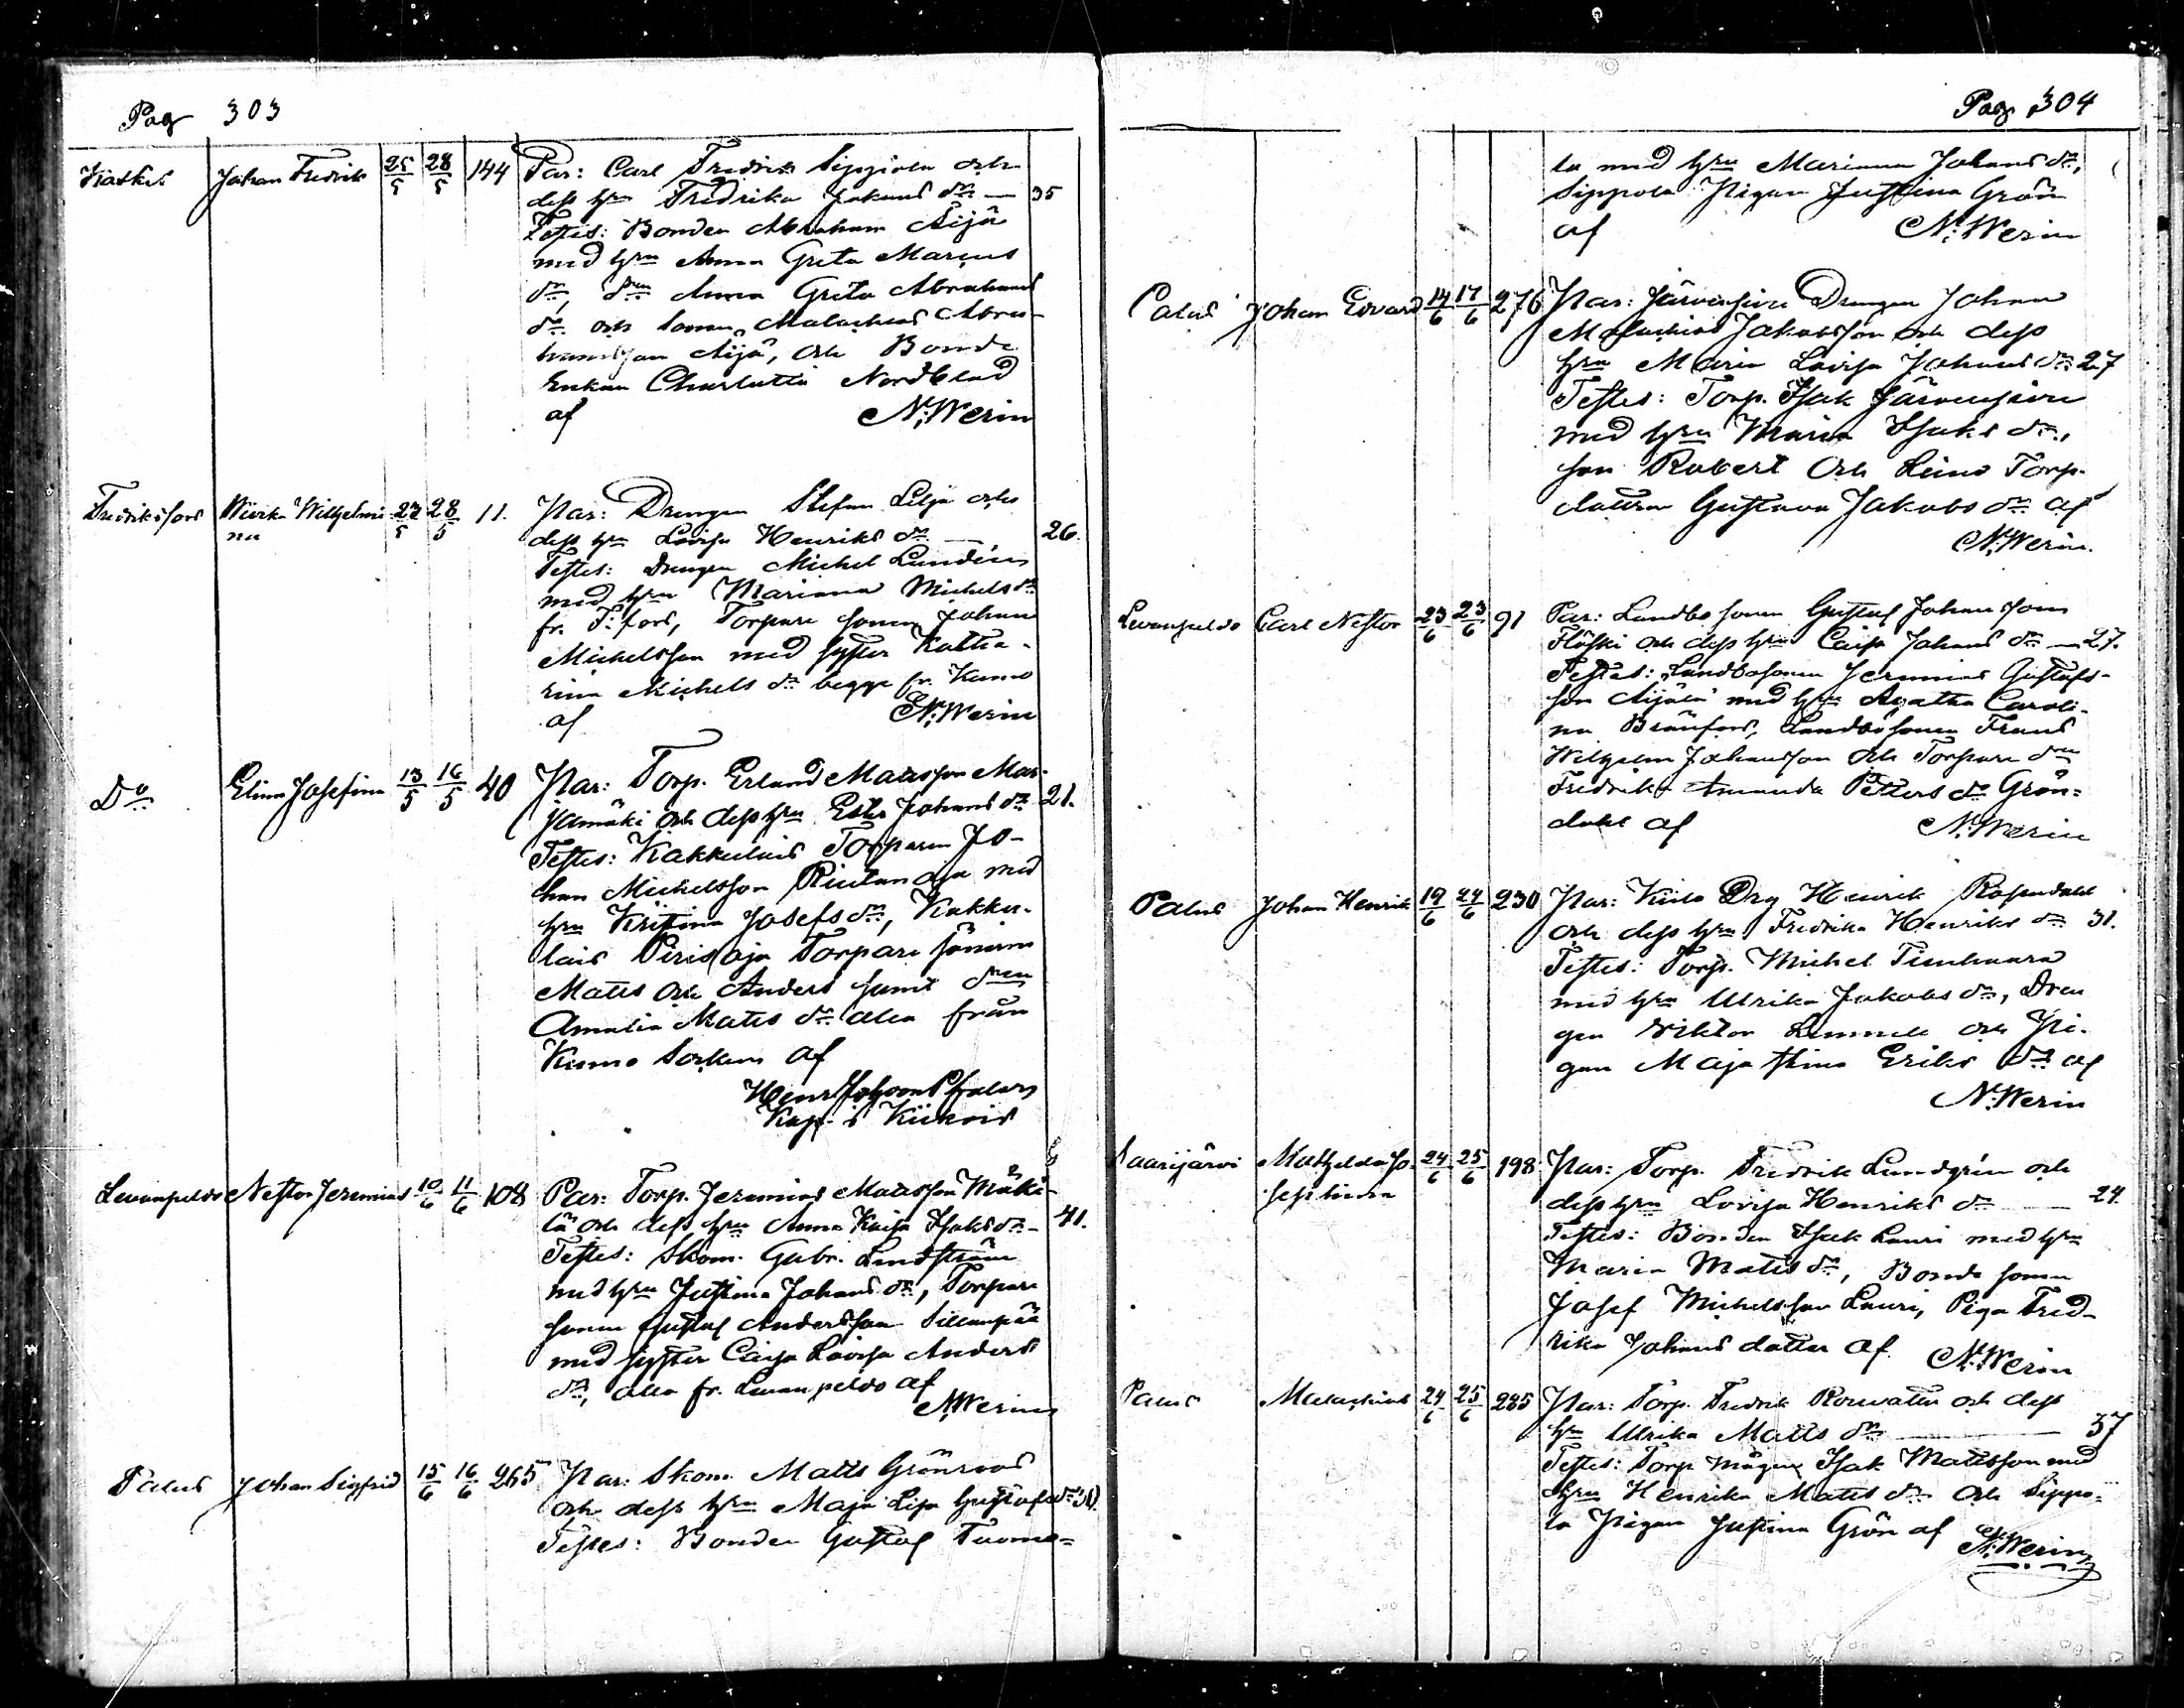 Pag 303
Kaskis Johan Fredrik 25/5 28/5 144 Par: Carl Fredrik Sippola och
dess hru Fredrika Johans dr — 35
Testis: Bonden Abraham Äijä
med hru Anna Greta Marcus
dr, dren Anna Greta Abrahams
dr och Sonen Malachias Abra-
hamsson Äijä, och Bonde
Enkan Charlotta Nordblad
af N: Werin
Fredriksfors Wilhelmi- 23/5 28/5 11. Par: Drengen Stefan Lilja och
na dess hru Lovisa Henriks dr — 26.
Testes: Drengen Michel Lundén
med hru Mariana Michels dr
fr. F: fors, Torpare sonen Johan
Michelsson med syster Katha-
rina Michels dr begge fr. Kumo
af N: Werin
Do Elina Josefina 13/5 16/5 40 Par: Torp. Erland Matsson Mar-
jamäki och dess hru Ester Johans dr 21.
Testes: Kakkulais Torparen Jo-
han Michelsson Rintanoja med
hru Kristina Josefs dr, Kakku-
lais Pirisoja Torpare sönerne
Matts och Anders samt dren
Amalia Matts dr alla från
Kumo Socken af
Kap. i Kiikois
Levanpelto Nestor Jeremias 10/6 11/6 108 Par: Torp. Jeremias Matsson Mäki-
lä och dess hru Anna Kaisa Isaks dr — 41.
Testes: Skom. Gabr. Lindström
med hru Justina Johans dr, Torpare
sonen Gustaf Andersson Sillanpää
med syster Caisa Lovisa Anders
dr, alla fr. Levanpelto af
N: Werin
Palus Johan Sigfrid 15/6 16/6 265 Par: Skom. Matts Grönroos
och dess hru Maja Lisa Gustafs dr 30.
Testes: Bonden Gustaf Tuomo-
Pag. 304
la med hru Mariana Johans dr,
Sippola Pigan Justina Grön
af N: Werin
Palus Johan Edvard 14/6 17/6 276 Par: Järvensivu Drengen Johan
Malachias Jakobsson och dess
hru Maria Lovisa Johans dr 27
Testes: Torp. Isak Järvensivu
med hru Maria Isaks dr,
son Robert och Leino Torp.
dottren Gustava Jakobs dr af
N: Werin.
Levanpelto Carl Nestor 23/6 23/6 91 Par: Landbo sonen Gustaf Johansson
och dess hru Caisa Johans dr — 27.
Testes: Landbosonen Jeremias Gustafs-
son Äijälä med hru Agatha Caroli-
na Landbosonen Frans
Wilhelm Johansson och Torpare dren
Fredrika Amanda Petters dr Grön-
dahl af N: Werin
Palus Johan Henrik 19/6 24/6 230 Par: Kiilo Drg Henrik Rosendahl
och dess hru Fredrika Henriks dr 31.
Testes: Torp. Michel
med hru Ulrika Jakobs dr, Dren
gen Viktor och Pi-
gan Maja Stina Eriks dr af
N: Werin
Saarijärvi Mathilda Jo- 24/6 25/6 198 Par: Torp. Fredrik Lundgrén och
sephina dess hru Lovisa Henriks dr — 24.
Testes: Bonden Isak Lauri med hru
Maria Matts dr, Bonde sonen
Josef Michelsson Lauri, Piga Fred-
rika Johans dotter af N: Werin
Palus Malachias 24/6 25/6 285 Par: Torp. Fredrik och dess
hru Ulrika Matts dr — 37
Testes: Torp. mågen Isak Mattsson med
hru Henrika Matts dr och Sippo-
la Pigan Justina Grön af N: Werin